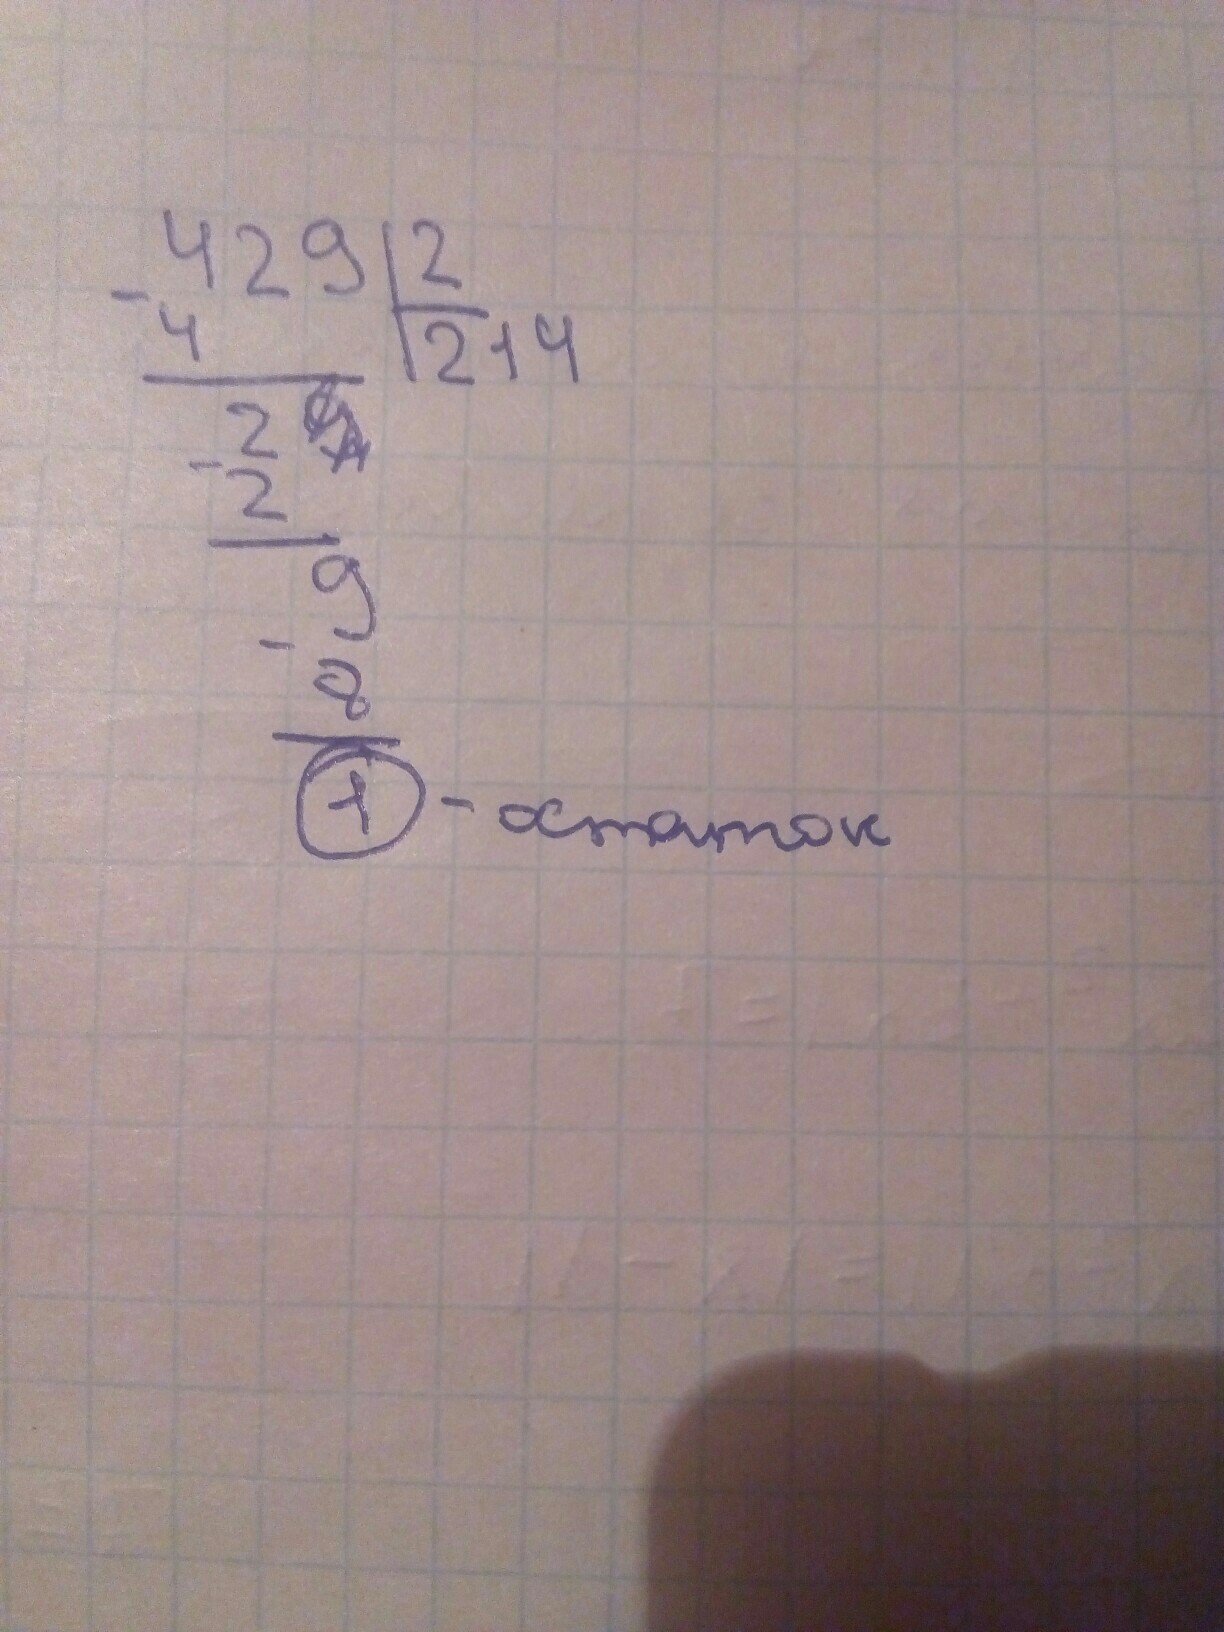 429 | 2
- 4 | 214
2
- 2
9
- 8
1 - остаток